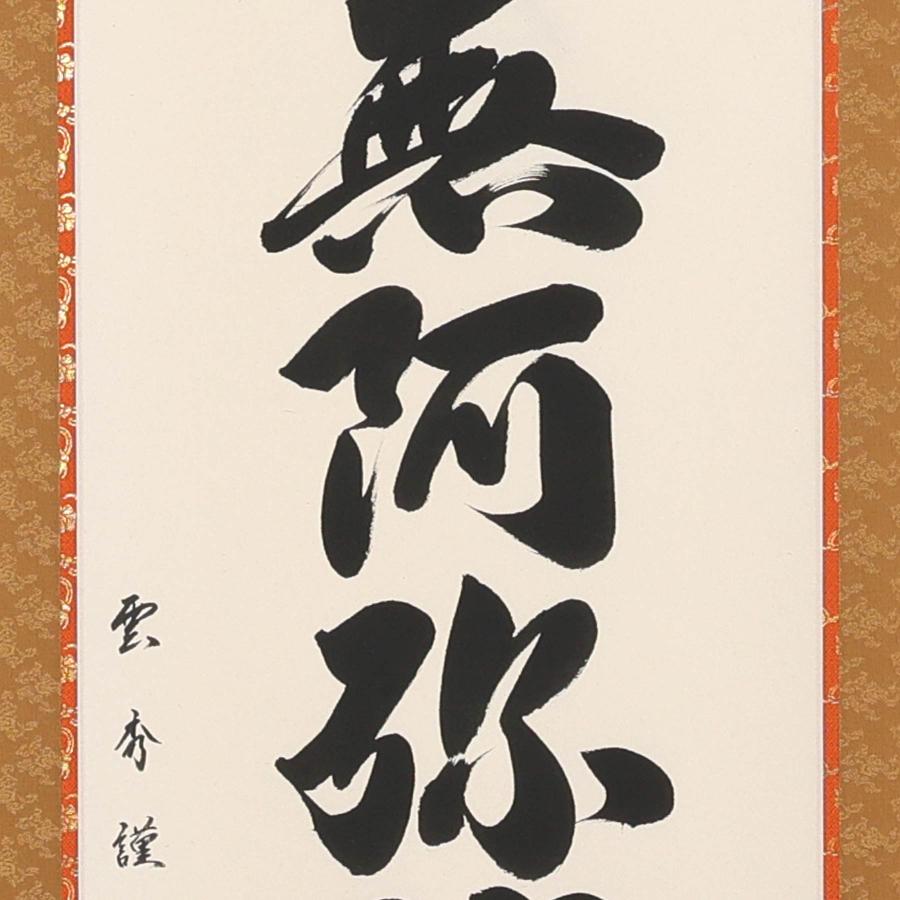 無阿弥
雲秀謹